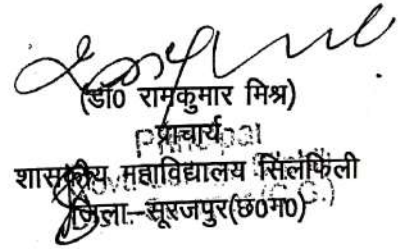 (डॉ0 रामकुमार मिश्र)
प्राचार्य
Principal
शासकीय महाविद्यालय सिलफिली
जिला–सूरजपुर(छ0ग0)